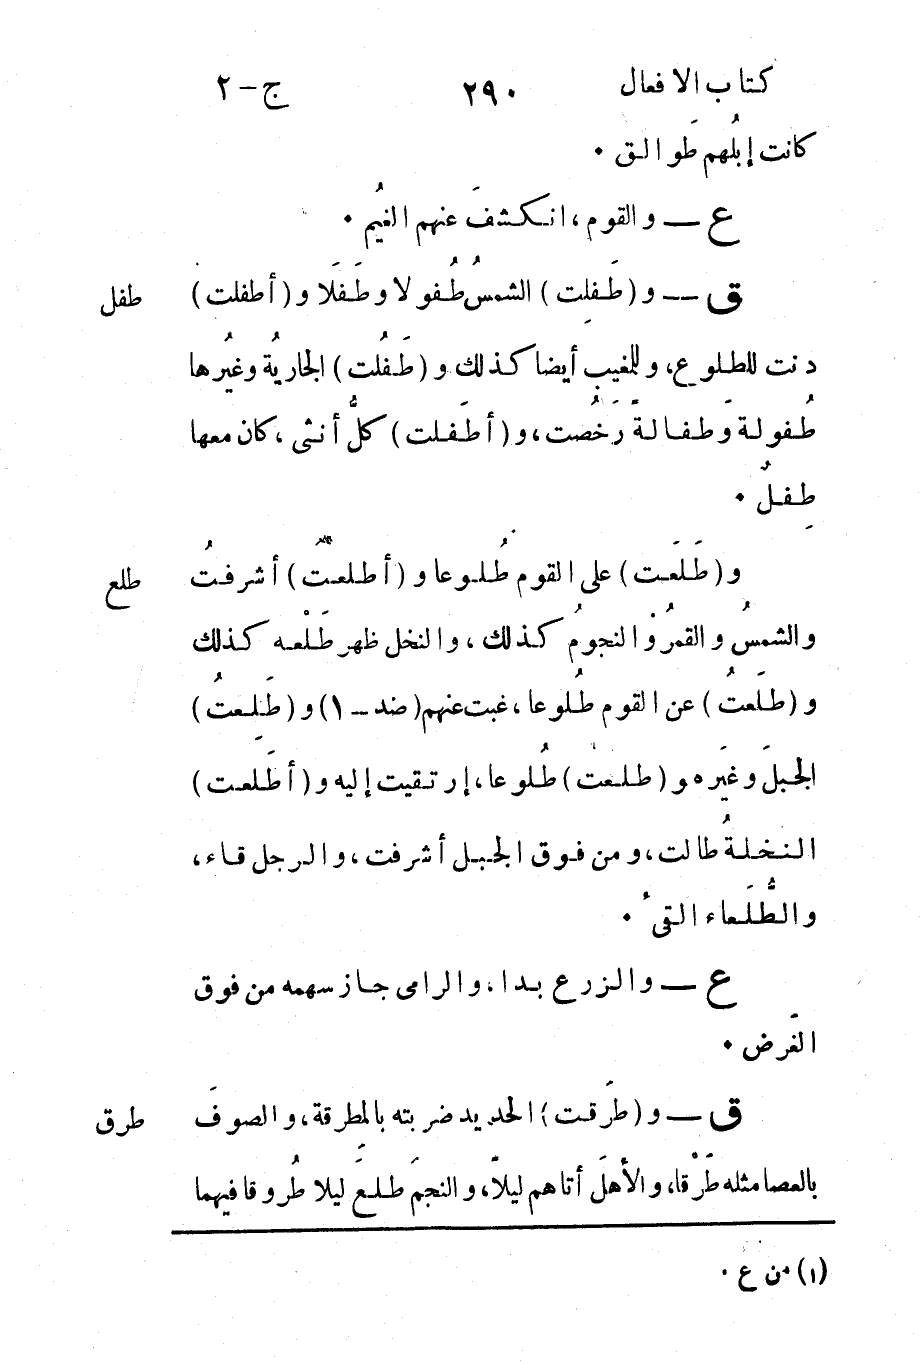 كتاب الافعال ٢٩٠ ج-٢
كانت إبلُهم طَوالق ٠
ع — والقوم، انكشفَ عنهم الغيُم ٠
ق — و (طَفِلت) الشمسُ طُفولا وطَفَلَا و (أطفلت) طفل
دنت للطلوع، وللمغيب أيضا كذلك و (طَفُلت) الجاريةُ وغيرُها
طُفولة وَطفالةً رَخُصت، و (أطفَلت) كلُّ أنثى، كان معها
طِفلٌ ٠
و (طَلَعَت) على القوم طُلوعا و (أطلعتُ) أشرفتُ طلع
والشمسُ والقمرُ والنجومُ كذلك، والنخل ظهر طَلْعه كذلك
و (طلَعتُ) عن القوم طُلوعا، غبت عنهم (ضد – ١) و (طَلِعتُ)
الجبلَ وغيَره و (طلعتَ) طُلوعا، إرتقيت إليه و (أطَلعت)
النخلةُ طالت، ومن فوق الجبل أشرفت، والرجل قاء،
والطُّلَعاء القىءُ ٠
ع — والزرع بدا، والرامى جاز سهمه من فوق
الغَرض ٠
ق — و (طرَقت) الحديد ضربته بالمطرقة، والصوفَ طرق
بالعصا مثله طَرْقا، والأهلَ أتاهم ليلًا، والنجمَ طلعَ ليلا طُروقا فيهما
(١) من ع ٠